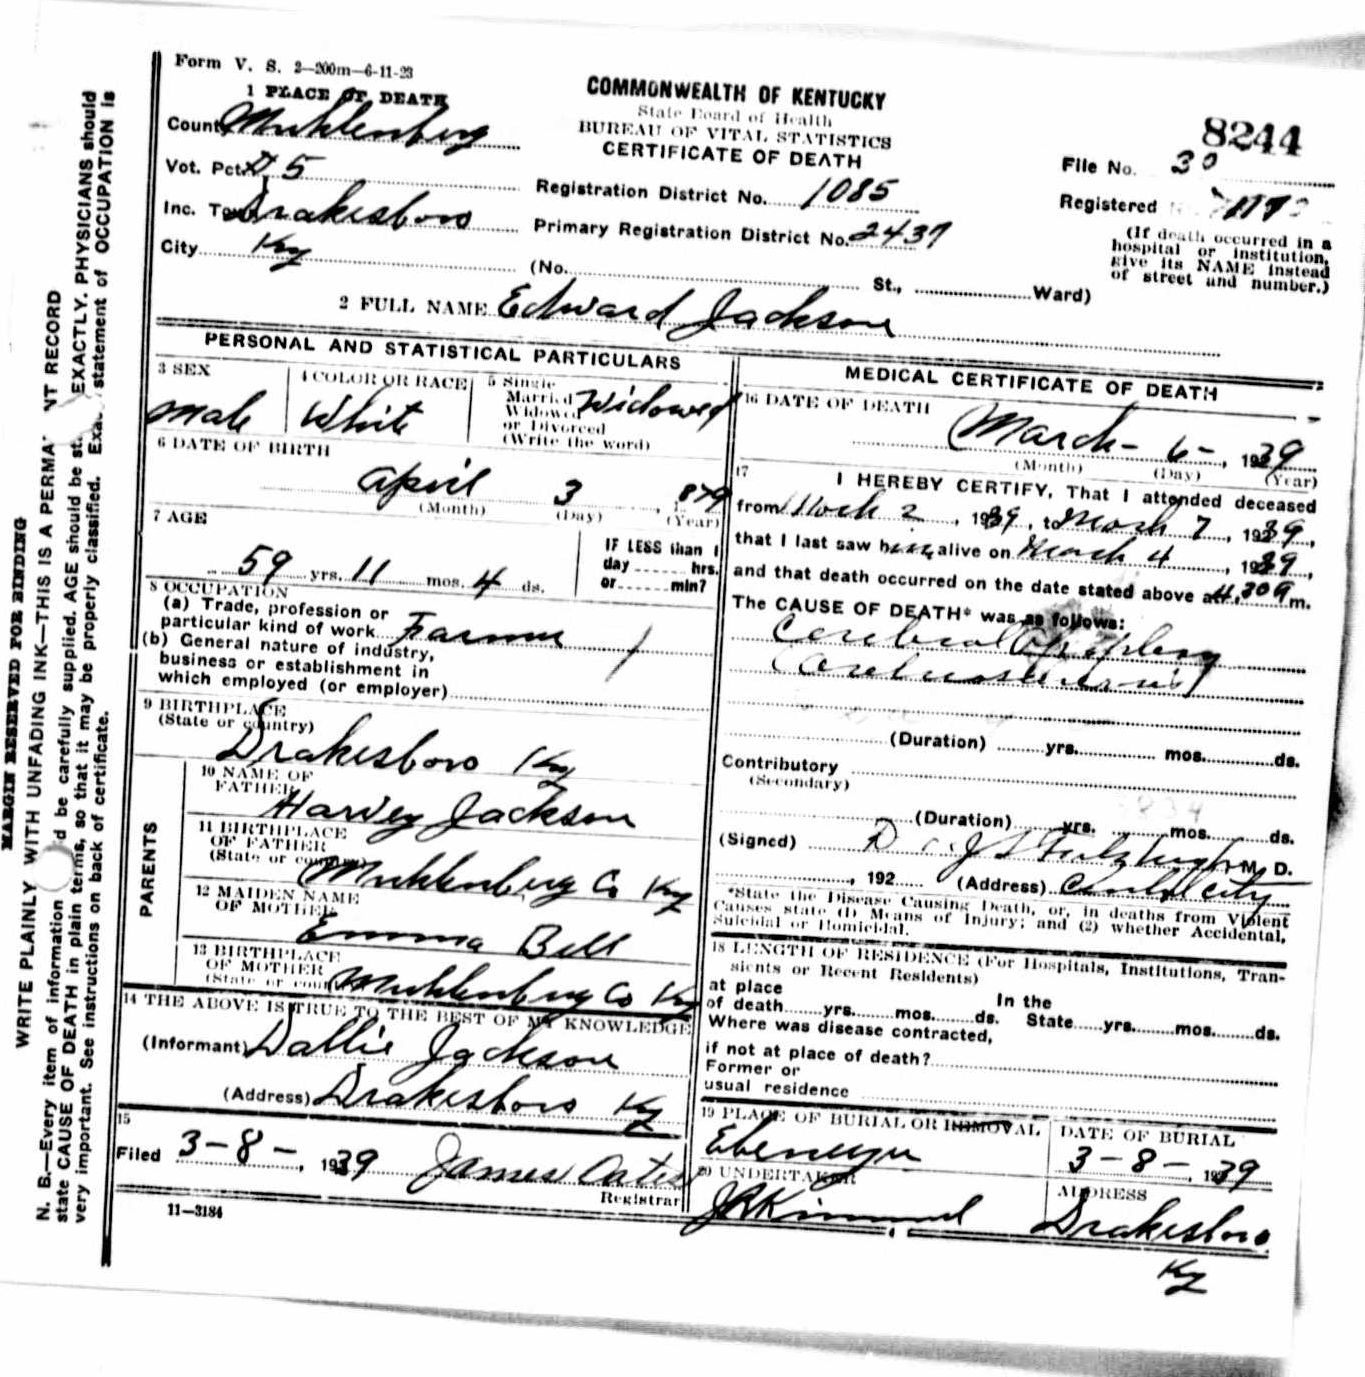 Form V. S. 2—200m—6-11-23
1 PLACE OF DEATH
County Muhlenberg
Vot. Pct. # 5
Inc. Town Drakesboro
City Ky
COMMONWEALTH OF KENTUCKY
State Board of Health
BUREAU OF VITAL STATISTICS
CERTIFICATE OF DEATH
Registration District No. 1085
Primary Registration District No. 2437
(No. St., Ward)
8244
File No. 30
Registered
(If death occurred in a
hospital or institution,
give its NAME instead
of street and number.)
2 FULL NAME Edward Jackson
PERSONAL AND STATISTICAL PARTICULARS
3 SEX
Male
4 COLOR OR RACE
White
5 Single
Married
Widowed
or Divorced
(Write the word)
Widowed
6 DATE OF BIRTH
April 3, 1879
(Month) (Day) (Year)
7 AGE
59 yrs. 11 mos. 4 ds.
IF LESS than 1
day hrs.
or min?
8 OCCUPATION
(a) Trade, profession or
particular kind of work Farmer
(b) General nature of industry,
business or establishment in
which employed (or employer)
9 BIRTHPLACE
(State or country)
Drakesboro Ky
PARENTS
10 NAME OF
FATHER
Harvey Jackson
11 BIRTHPLACE
OF FATHER
(State or country)
Muhlenberg Co Ky
12 MAIDEN NAME
OF MOTHER
Emma Bell
13 BIRTHPLACE
OF MOTHER
(State or country)
Muhlenberg Co Ky
14 THE ABOVE IS TRUE TO THE BEST OF MY KNOWLEDGE
(Informant) Dallie Jackson
(Address) Drakesboro Ky
15
Filed 3-8-, 1939 James Oates
Registrar
11—3184
MEDICAL CERTIFICATE OF DEATH
16 DATE OF DEATH
March - 6 -, 1939
(Month) (Day) (Year)
17
I HEREBY CERTIFY, That I attended deceased
from Mch 2, 1939, to March 7, 1939,
that I last saw him alive on March 4, 1939,
and that death occurred on the date stated above at 4,30 a m.
The CAUSE OF DEATH* was as follows:
Cerebral Apoplexy
(Duration) yrs. mos. ds.
Contributory
(Secondary)
(Duration) yrs. mos. ds.
(Signed) Fitzhugh M. D.
, 192 (Address) Central City
*State the Disease Causing Death, or, in deaths from Violent
Causes state (1) Means of Injury; and (2) whether Accidental,
Suicidal or Homicidal.
18 LENGTH OF RESIDENCE (For Hospitals, Institutions, Tran-
sients or Recent Residents)
at place
of death yrs. mos. ds. In the State yrs. mos. ds.
Where was disease contracted,
if not at place of death?
Former or
usual residence
19 PLACE OF BURIAL OR REMOVAL
Ebenezer
DATE OF BURIAL
3-8-, 1939
20 UNDERTAKER
J R Kimmel
ADDRESS
Drakesboro
Ky
MARGIN RESERVED FOR BINDING
WRITE PLAINLY WITH UNFADING INK—THIS IS A PERMA NT RECORD
N. B.—Every item of information d be carefully supplied. AGE should be st EXACTLY. PHYSICIANS should
state CAUSE OF DEATH in plain terms, so that it may be properly classified. Exa statement of OCCUPATION is
very important. See instructions on back of certificate.